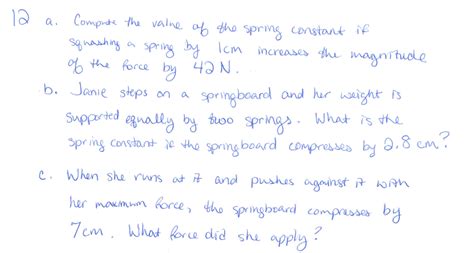 12 a. Compute the value of the spring constant if
squashing a spring by 1cm increases the magnitude
of the force by 42 N.
b. Janie steps on a springboard and her weight is
supported equally by two springs. What is the
spring constant if the springboard compresses by 2.8 cm?
c. When she runs at it and pushes against it with
her maximum force, the springboard compresses by
7cm. What force did she apply?